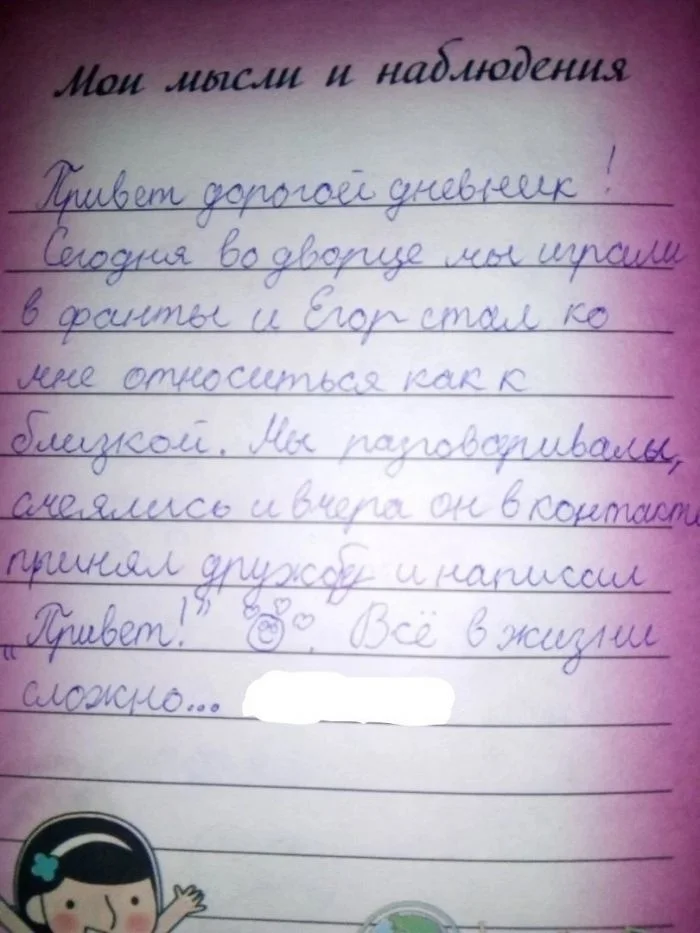 Мои мысли и наблюдения
Привет дорогой дневник!
Сегодня во дворце мы играли
в фанты и Егор стал ко
мне относиться как к
близкой. Мы разговаривалы,
смеялись и вчера он в контакте
принял дружбу и написал
„Привет!" . Всё в жизни
сложно...